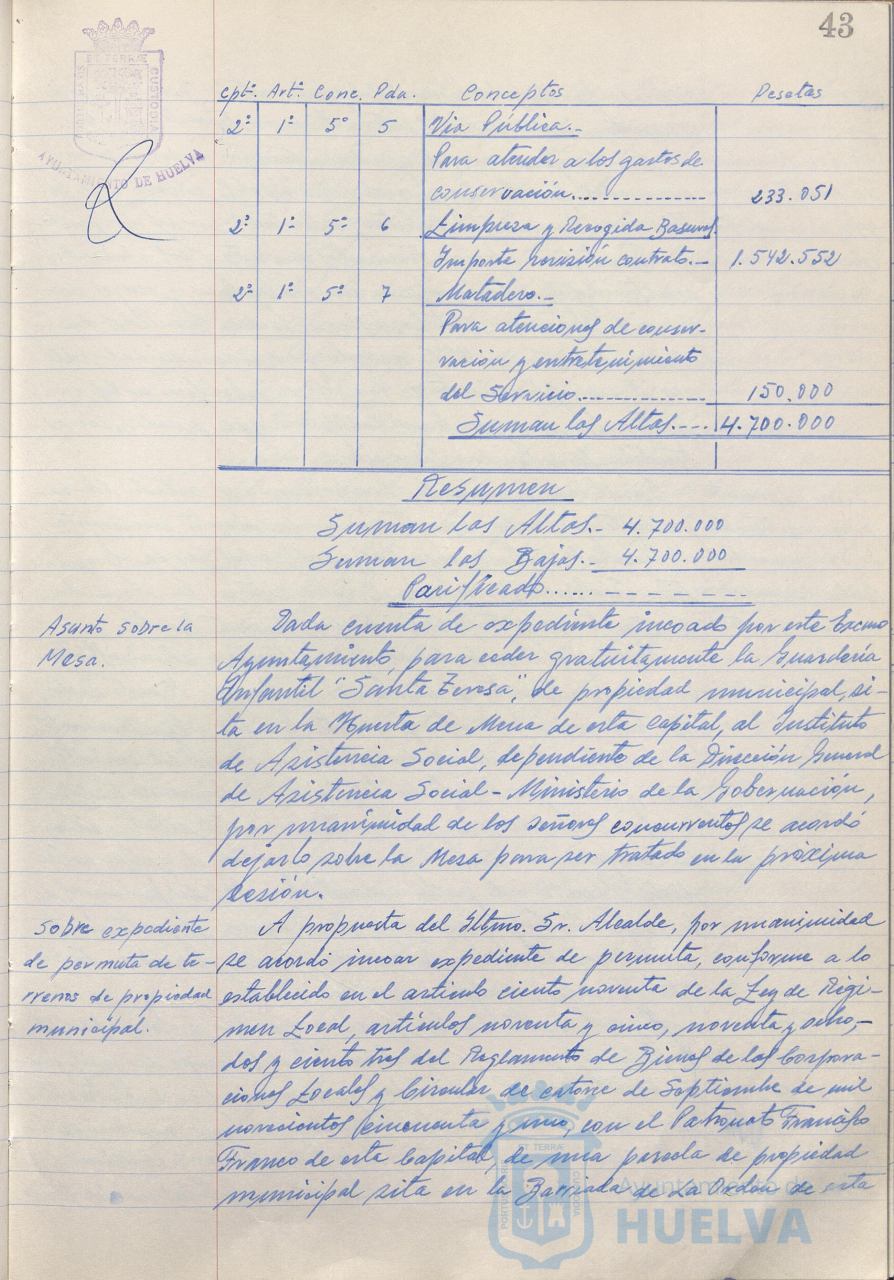 43
PORTUS MARIS ET TERRAE CUSTODIA
AYUNTAMIENTO DE HUELVA
Cptº. Artº. Conc. Pda. Conceptos Pesetas
2º 1º 5º 5 Via Pública.-
Para atender a los gastos de
conservación.............. 233.051
2º 1º 5º 6 Limpieza y Recogida Basuras.
Importe revisión contrato.- 1.542.552
2º 1º 5º 7 Matadero.-
Para atenciones de conser-
vación y entretenimiento
del Servicio.............. 150.000
Suman las Altas.--. 4.700.000
Resumen
Suman las Altas.- 4.700.000
Suman las Bajas.- 4.700.000
Asunto sobre la
Mesa.
Dada cuenta de expediente incoado por este Excmo
Ayuntamiento, para ceder gratuitamente la Guardería
Infantil "Santa Teresa", de propiedad municipal, si-
ta en la Huerta de Mena de esta capital, al Instituto
de Asistencia Social, dependiente de la Dirección General
de Asistencia Social - Ministerio de la Gobernación,
por unanimidad de los señores concurrentes, se acordó
dejarlo sobre la Mesa para ser tratado en la próxima
sesión.
Sobre expediente
de permuta de te-
rrenos de propiedad
municipal.
A propuesta del Iltmo. Sr. Alcalde, por unanimidad
se acordó incoar expediente de permuta, conforme a lo
establecido en el articulo ciento noventa de la Ley de Régi-
men Local, artículos noventa y cinco, noventa y ocho,-
dos y ciento tres del Reglamento de Bienes de las Corpora-
ciones Locales y Circular de catorce de Septiembre de mil
novecientos cincuenta y uno, con el Patronato Francisco
Franco de esta Capital de una parcela de propiedad
municipal sita en la Barriada de La Orden de esta
PORTUS MARIS ET TERRAE CUSTODIA
Ayuntamiento de
HUELVA